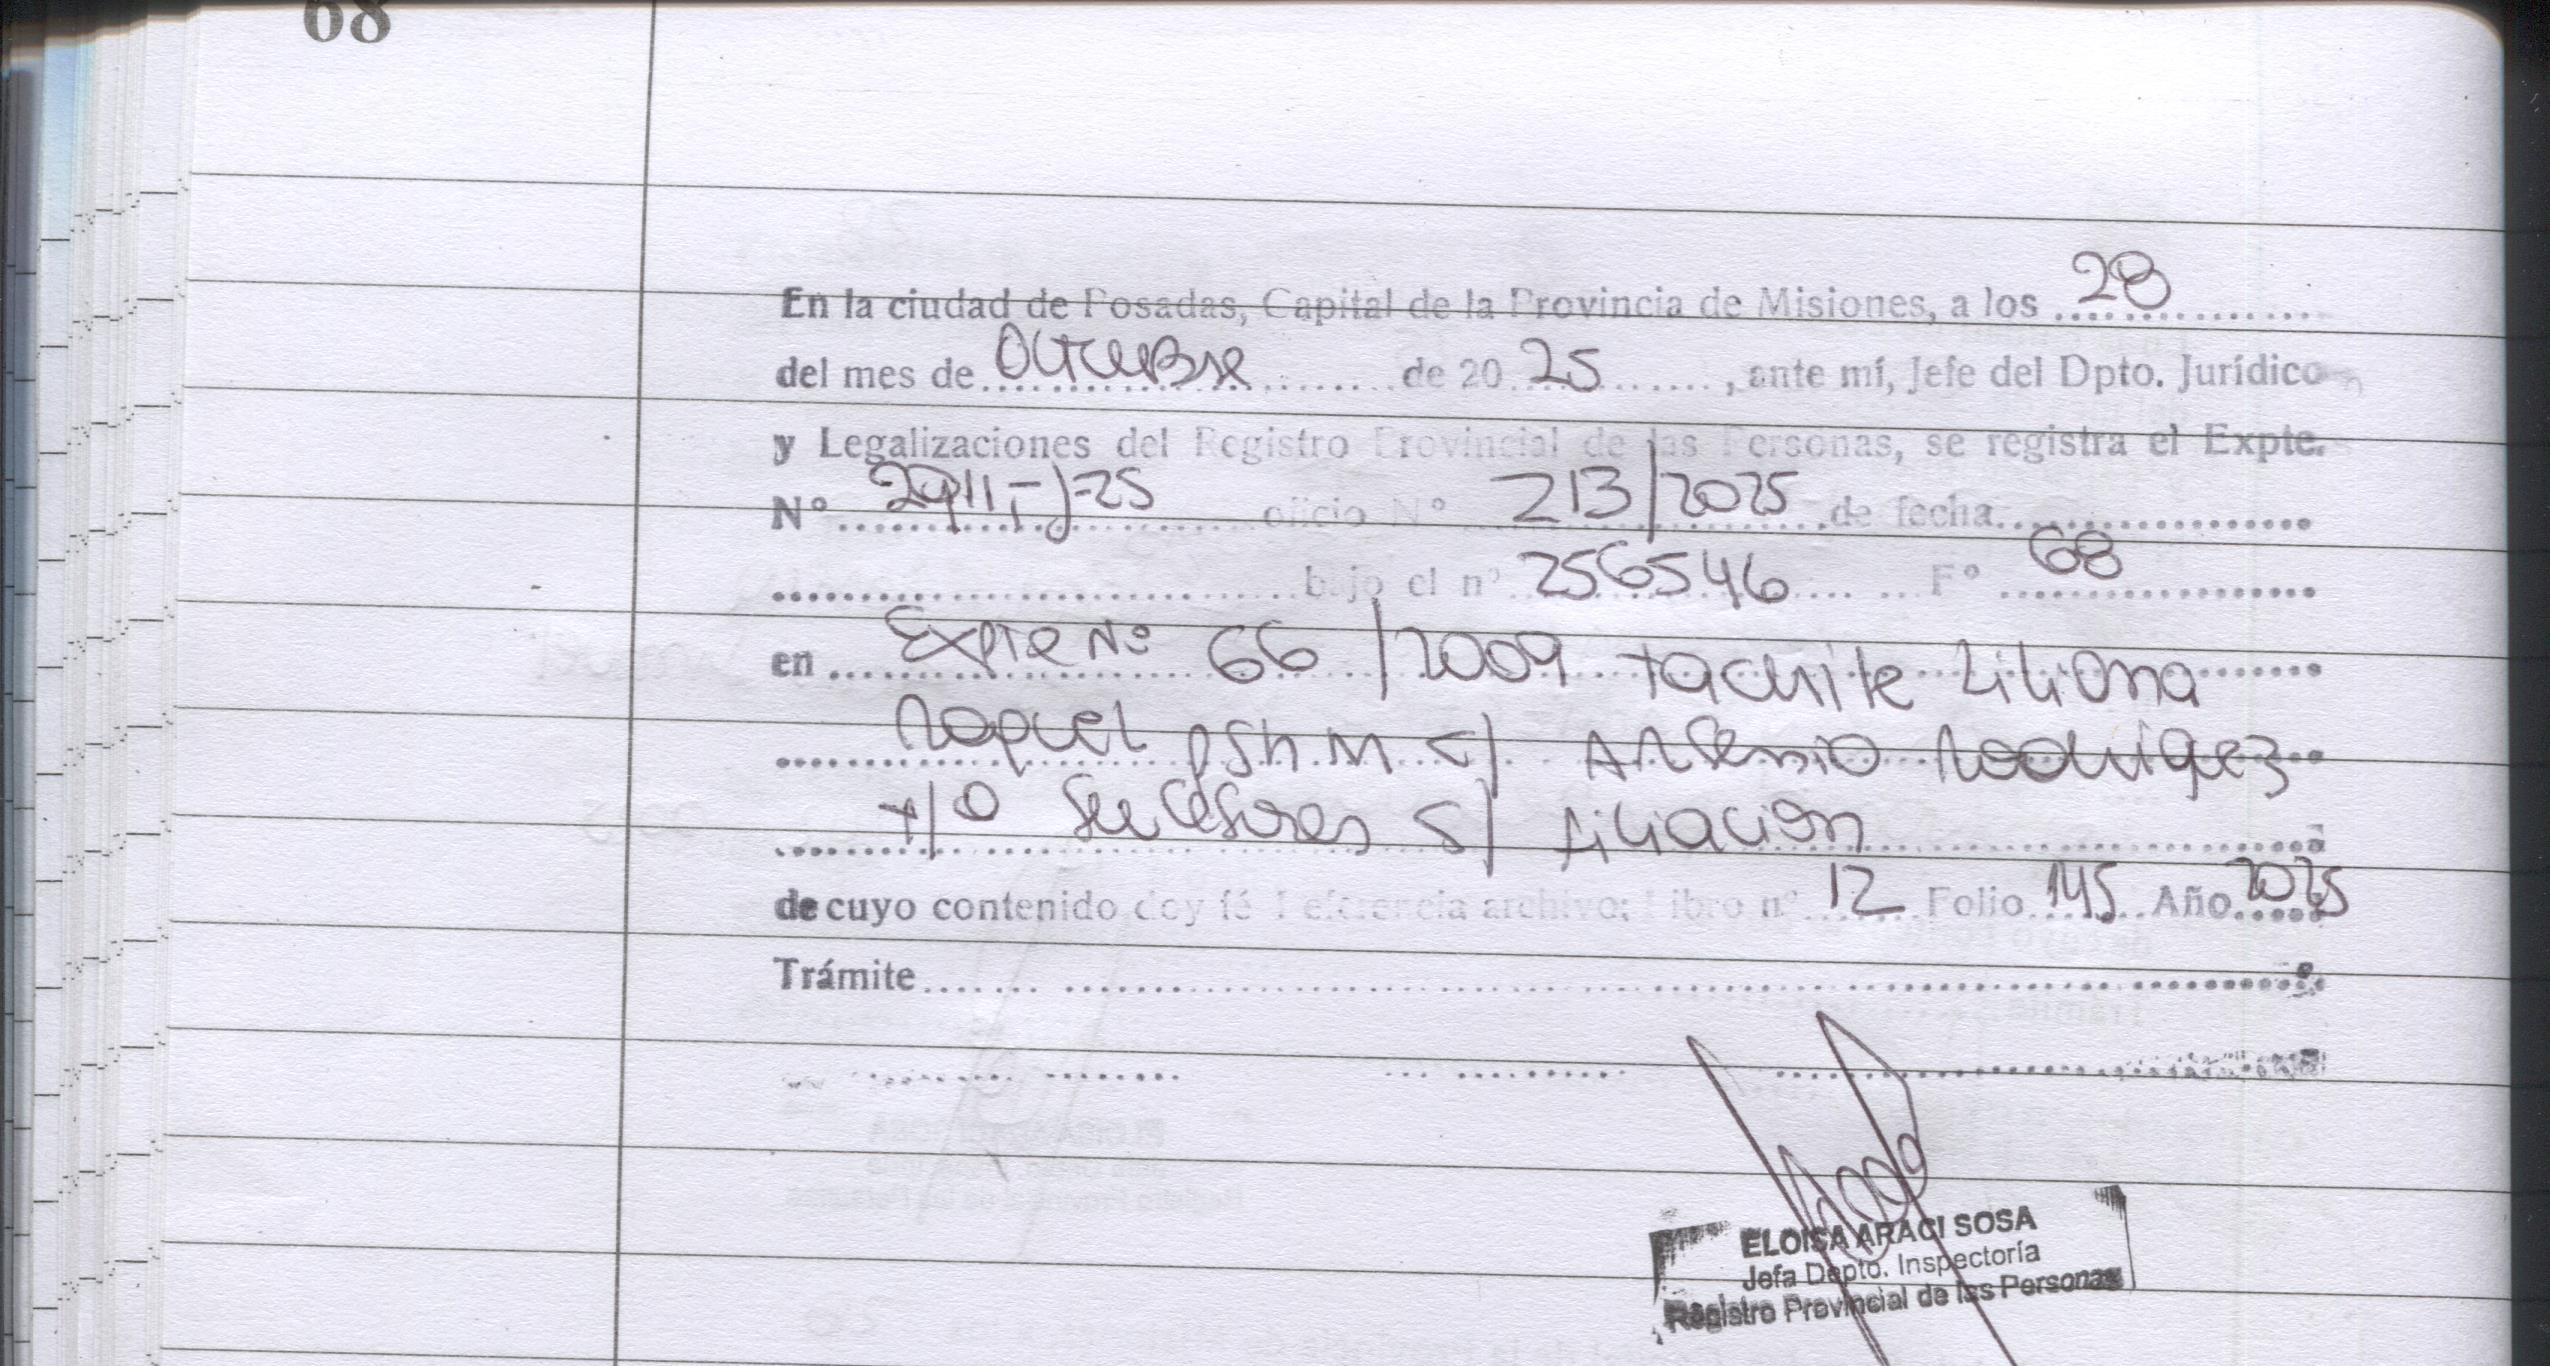 68
En la ciudad de Posadas, Capital de la Provincia de Misiones, a los 28
del mes de Octubre de 20 25, ante mí, Jefe del Dpto. Jurídico
y Legalizaciones del Registro Provincial de las Personas, se registra el Expte.
Nº oficio Nº 213/2025 de fecha
bajo el nº 256546 Fº 68
en Expte Nº 66/2009 Liliana
Raquel c/ Rodriguez
y/o Sucesores s/ filiacion
de cuyo contenido doy fé Referencia archivo: Libro nº 12 Folio 145 Año 2025
Trámite
ELOISA ARACI SOSA
Jefa Depto. Inspectoría
Registro Provincial de las Personas